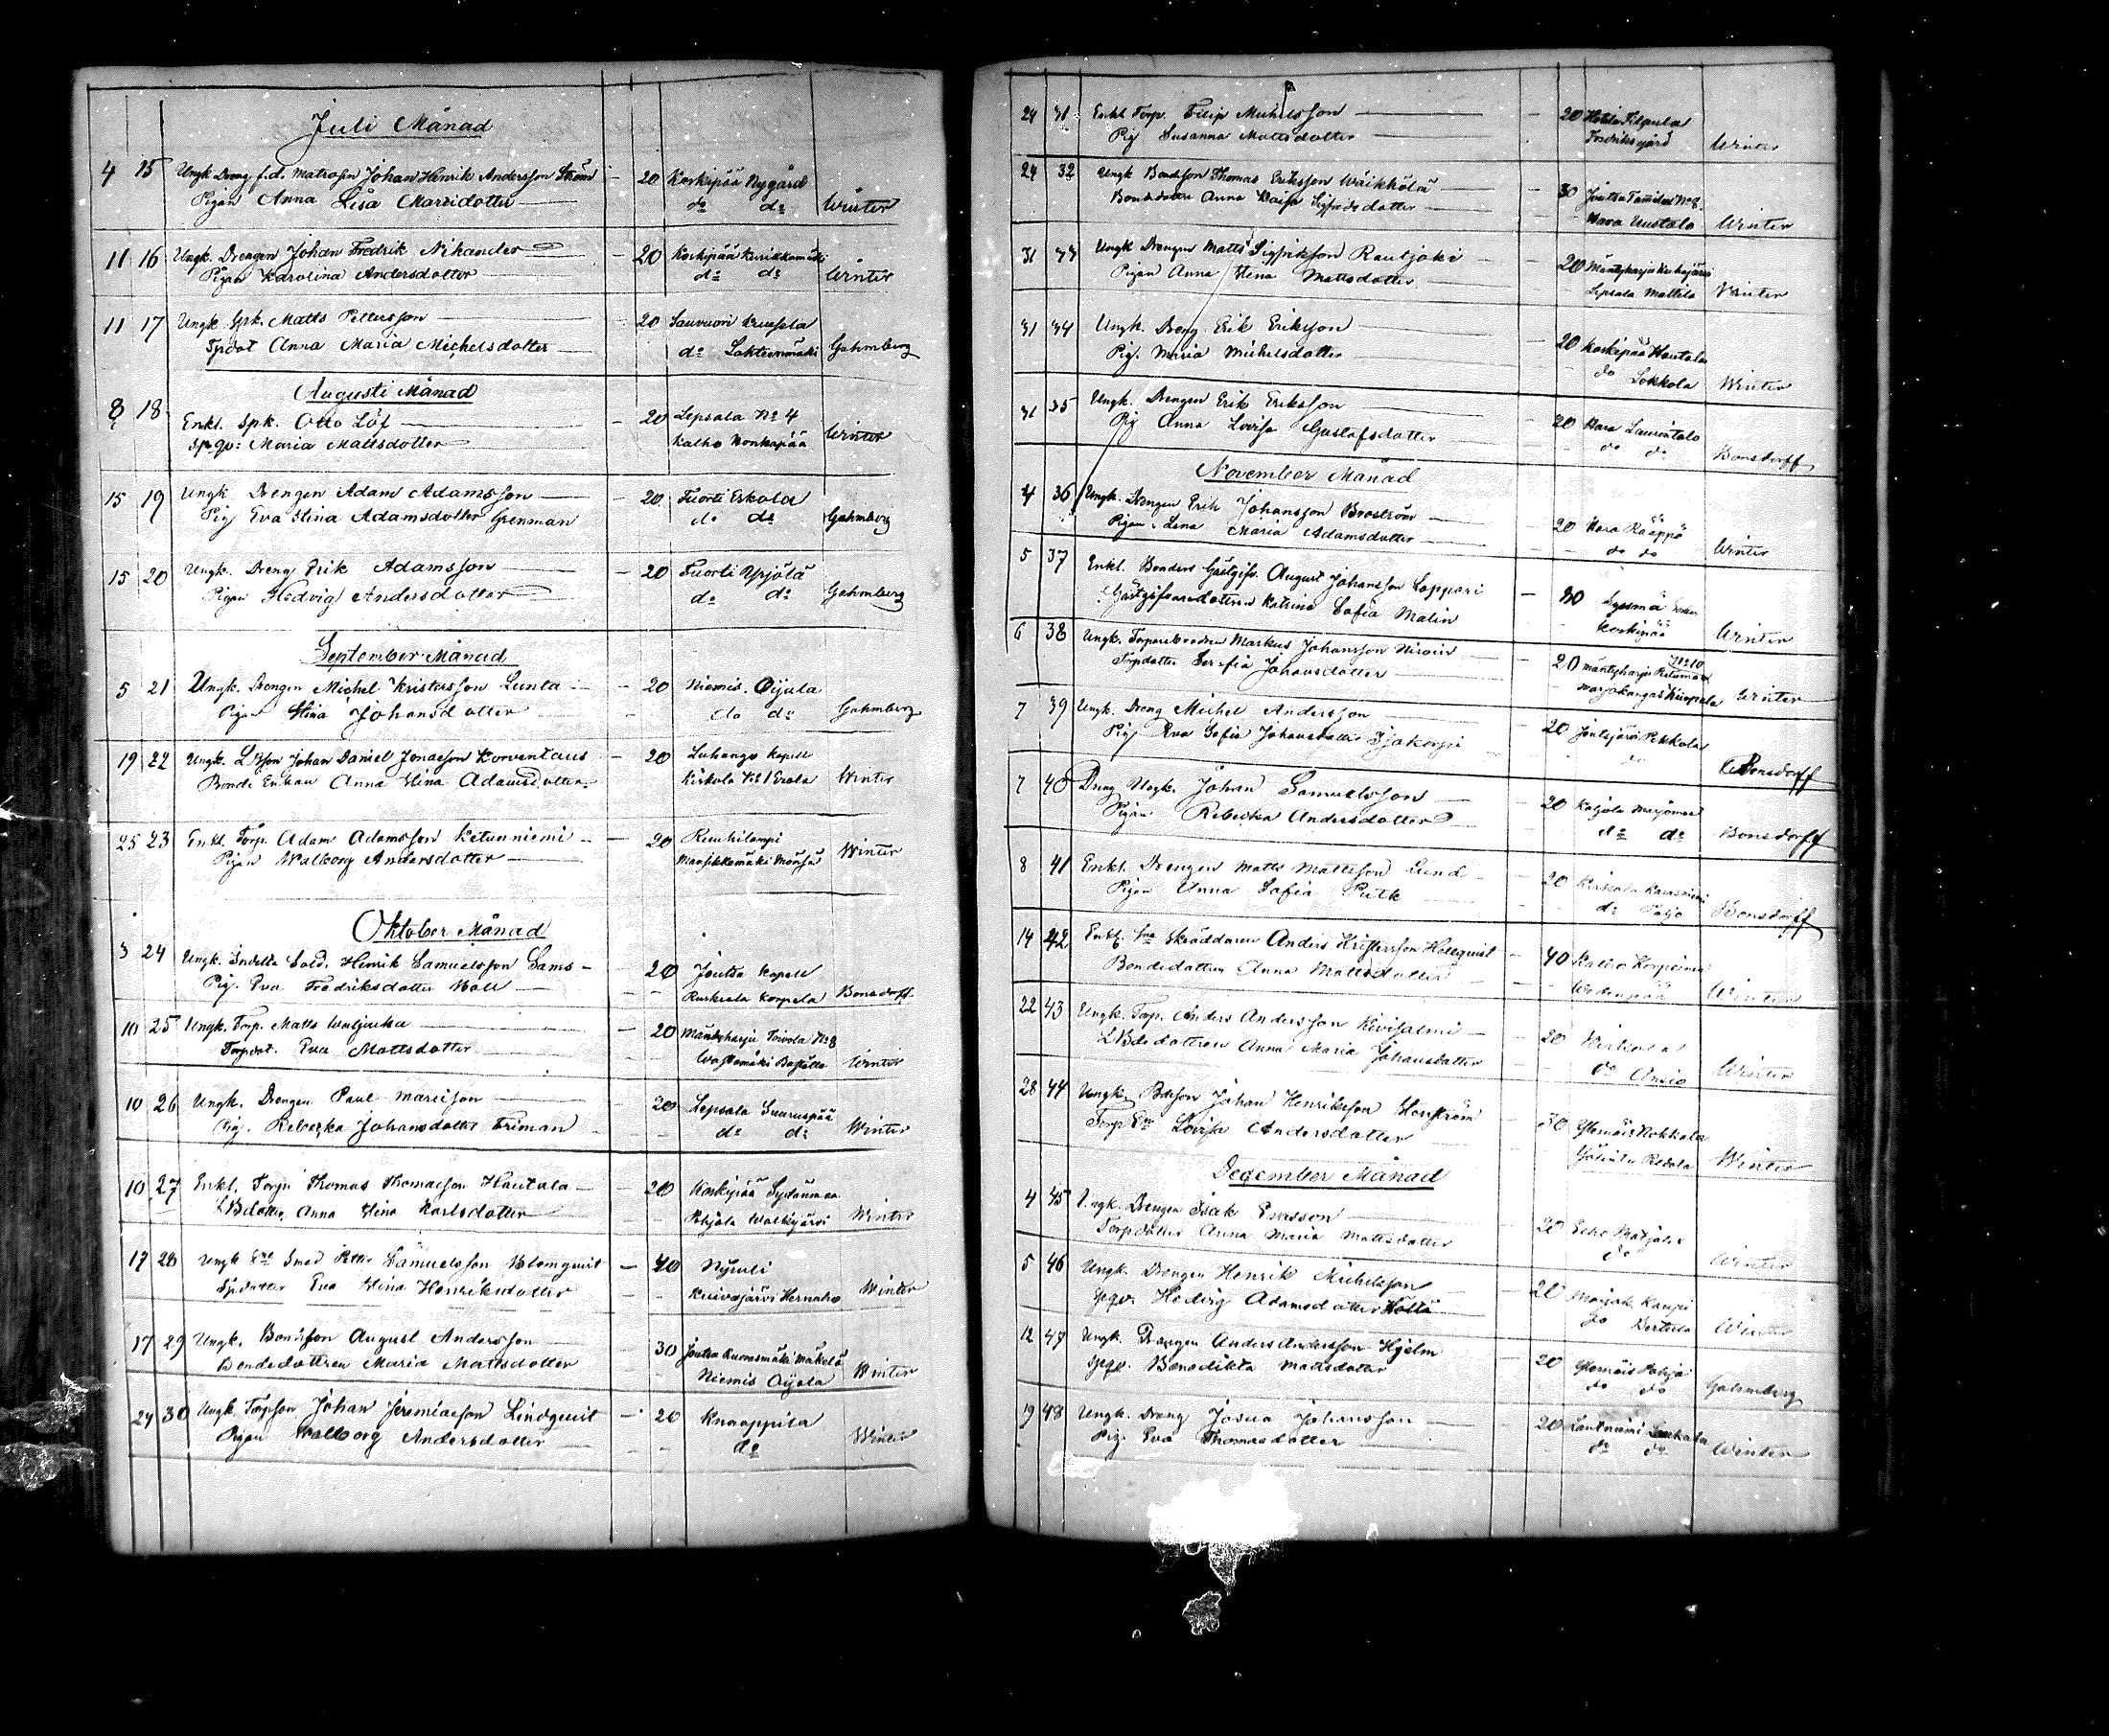 Juli Månad
4 15 Ungk Dreng f.d. Matrosen Johan Henrik Andersson Ström — 20 Koskipää Nygård
Pigan Anna Lisa Mariidotter — do do Winter
11 16 Ungk. Drengen Johan Fredrik Nihander — 20 Koskipää Kurikkamäki
Pigan Karolina Andersdotter do do Winter
11 17 Ungk. Spk. Matts Pettersson — 20 Sauvuori
Tpdot Anna Maria Michelsdotter — do Lahteenmäki Gahmberg
Augusti Månad
8 18 Enkl. Spk. Otto Löf — 20 Lepsala No 4
Spqv: Maria Mattsdotter — Kalho Konkapää Winter
15 19 Ungk Drengen Adam Adamsson — 20 Tuorti Eskola
Pig Eva Stina Adamsdotter Grenman do do Gahmberg
15 20 Ungk. Dreng Erik Adamsson — 20 Tuorti Yrjölä
Pigan Hedvig Andersdotter do do Gahmberg
September Månad
5 21 Ungk. Drengen Michel Kristersson Lunta — 20 Niemis. Oijala
Pigan Stina Johansdotter do do Gahmberg
19 22 Ungk. LBson Johan Daniel Jonasson Korventaus — 20 Luhango Kapell
Bonde Enkan Anna Stina Adamsdotter Kirkola No 1 Erola Winter
25 23 Enkl. Torp. Adam Adamsson Ketunniemi — 20 Ruuhilampi
Pigan Walborg Andersdotter — Mansikkamäki Winter
Oktober Månad
3 24 Ungk. Indelta Sold. Henrik Samuelsson Sams — 20 Joutsa Kapell
Pig. Eva Fredriksdotter Ruskeala Korpela Bonsdorff
10 25 Ungk. Torp. Matts — 20 Mäntyharju Toivola No 8
Torpdot. Eva Mattsdotter Winter
10 26 Ungk. Drengen Paul Mariison — 20 Lepsala Suuruspää
Pig. Rebecka Johansdotter Friman — do do Winter
10 27 Enkl. Torp Thomas Thomasson Hautala — 20 Koskipää Sydänmaa
LBdotter Anna Stina Karlsdotter Pohjola Walkjärvi Winter
17 28 Ungk Smed Petter Samuelsson Blomqvist — 40 Nyruli
Tpdotter Eva Stina Henriksdotter Kuivajärvi Hernaho Winter
17 29 Ungk. Bondson August Andersson — 30 Joutsa Kuomsmäki Mäkelä
Bondedottren Maria Mattsdotter Niemis Oijala Winter
24 30 Ungk. Torpson Johan Jeremiasson Lindqvist — 20 Knaappila
Pigan Walborg Andersdotter — do Winter
24 31 Enkl Torp. Filip Michelsson — 20
Pig Susanna Mattsdotter Fredriksgård Winter
24 32 Ungk Bondson Thomas Eriksson Wäikkölä — 30 Joutsa No 8.
Bondedottren Anna Kaisa Sigfridsdotter Hara Uustalo Winter
31 33 Ungk Drengen Matts Sigfriksson Rautjoki — 20 Mäntyharju
Pigan Anna Stina Mattsdotter Lepsala Mattila Winter
31 34 Ungk. Dreng. Erik Eriksson — 20 Koskipää Hautala
Pig. Maria Michelsdotter do Sokkola Winter
31 35 Ungk. Drengen Erik Eriksson — 20 Hara Laurintalo
Pig Anna Lovisa Gustafsdotter do do Bonsdorff
November Månad
4 36 Ungk. Drengen Erik Johansson Broström — 20 Hara Rääppö
Pigan Lena Maria Adamsdotter — do do Winter
5 37 Enkl. Bonden Gästgifv. August Johansson Loppari — 30 Sysmä
Gästgifvaredottren Katrina Sofia Malin Koskipää Winter
6 38 Ungk. Markus Johansson — 20 Mäntyharju No 10
Torpdotter Serafia Johansdotter Marjokangas Winter
7 39 Ungk. Dreng Michel Andersson — 20 Joutsjärvi Pekkola
Pig Eva Sofia Johansdotter do Bonsdorff
7 40 Dreng Ungk. Johan Samuelsson — 20
Pigan Rebecka Andersdotter do do Bonsdorff
8 41 Enkl. Drengen Matts Mattsson Lund — 20
Pigan Anna Sofia Putk do Bonsdorff
14 42 Enkl. Skräddaren Anders Kristersson Hellqvist — 40 Kalho
Bondedottren Anna Mattsdotter Winter
22 43 Ungk. Torp. Anders Andersson Kivisalmi — 20 Wirkola
LBdedottren Anna Maria Johansdotter do Ansio Winter
28 44 Ungk. Bdeson Johan Henriksson — 30 Ylemäis Nokkala
Torp Lovisa Andersdotter Winter
December Månad
4 45 Ungk. Drengen Isak Evasson — 20
Torpdotter Anna Maria Mattsdotter do Winter
5 46 Ungk. Drengen Henrik Michelsson 20
Spqv. Hedvig Adamsdotter do Winter
12 47 Ungk. Drengen Anders Andersson Hjelm 20 Ylemäis
Spqv. Benedikta Mattsdotter do do Gahmberg
19 48 Ungk. Dreng Josua Johansson — 20
Pig. Eva Thomasdotter — do do Winter